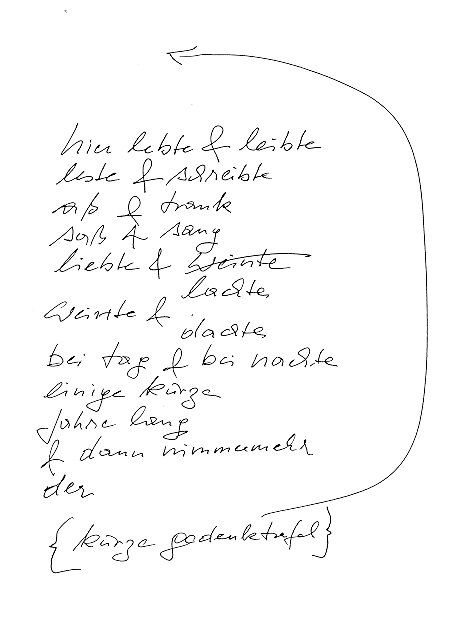 hier lebte & leibte
leste & schreibte
aß & trank
saß & sang
liebte & weinte
lachte
weinte &
dachte
bei tag & bei nachte
einige kurze
jahre lang
& dann nimmermehr
der
{kurze gedenktafel}